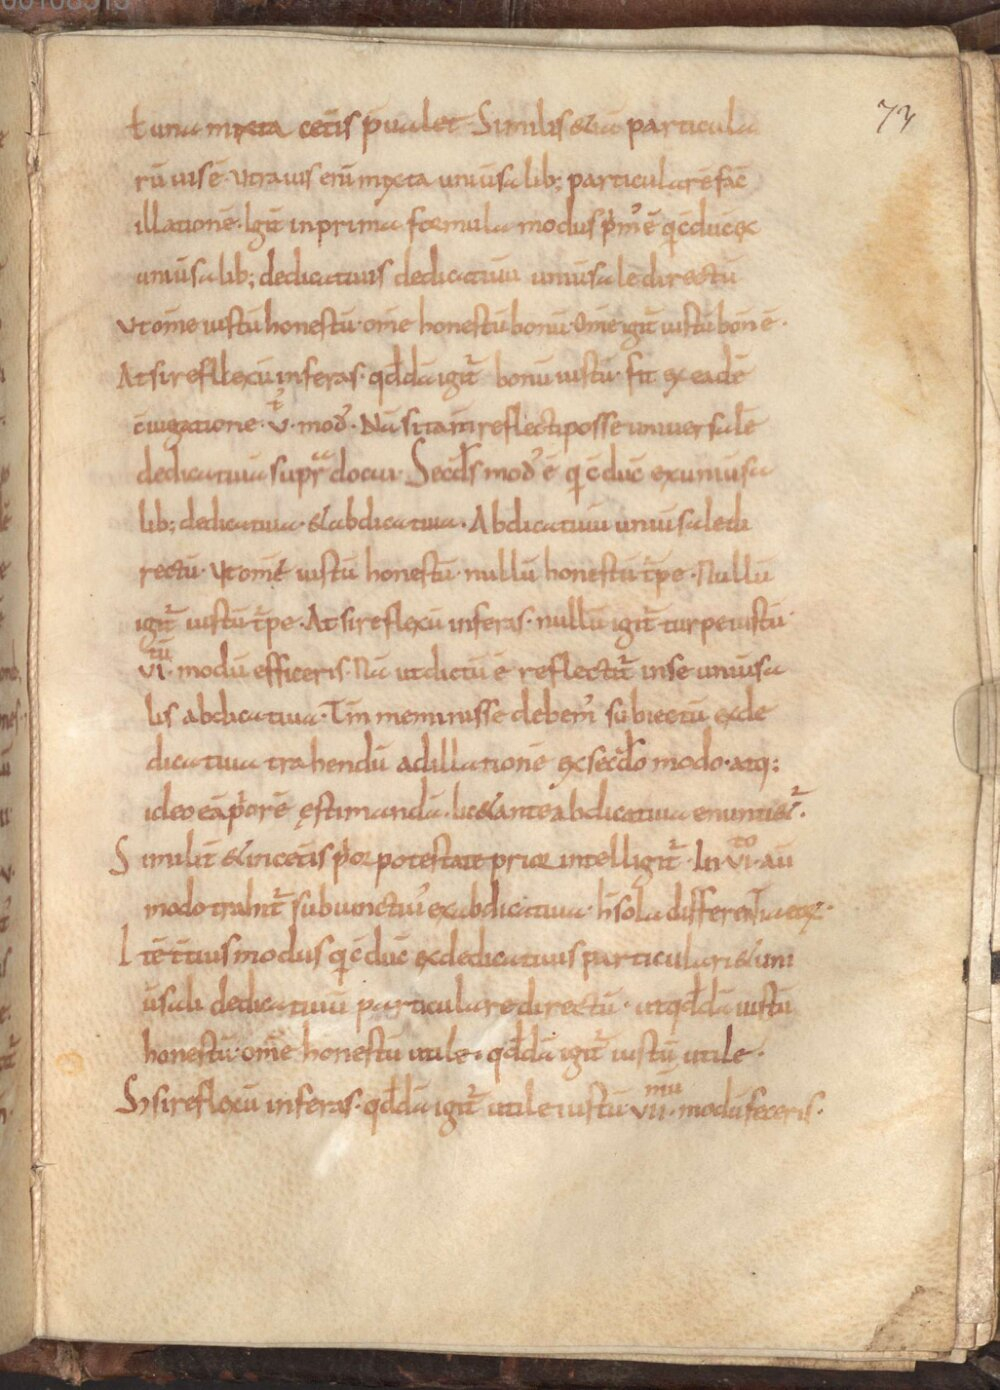 73
ł una mixta cet̄is p̄ualet Similis &iā particula
rū uis ē· Vtrauis enī mixta uniūsalib; particularē fac̄
illationē· Igit̄ in prima formula modus p̄m᾿ ē q c̄duc̄ ex
uniūsalib; dedicatiuis dedicatiuū uniūsale directū
Vt om̄e iustū honestū· om̄e honestū bonū· Om̄e igit̄ iustū bon ē·
At si reflexū inferas· qd̄dā igit̄ bonū iustū· fit ex eadē
c̄iugatione· V· mod᾿· Nā sitam̄ reflecti posse uniuersalē
dedicatiuā supra docui· Secd̄s mod᾿ ē q c̄duc̄ ex uniūsa
lib; dedicatiua· & abdicatiua· Abdicatiuū uniūsale di
rectū· Vt om̄e iustū honestū· nullū honestū t̄pe· Nullū
igit̄ iustū t̄pe· At si reflexū inferas· nullū igit̄ turpe iustū·
tū
VI· modū efficeris· Nā ut dictū ē reflectit̄ in se uniūsa
lis abdicatiua· Tm̄ meminisse debem᾿ subiectū ex de
dicatiua trahendū ad illationē ex secd̄o modo· atq:
ideo eā p̄orē ęstimandā· lic& ante abdicatiua enunti&̄·
Similit̄ & in cet̄is p̄or potestate prior intelligit̄· In VI· au
to
modo trahit̄ subiunctiu᾿ ex abdicatiua· h̄ sola differentia eoꝝ·
Itē t̄tius modus q c̄duc̄ ex dedicatiuis particulari & uni
ūsali dedicatiuū particulare directū· ut qd̄dā iustū
honestū· om̄e honestū utile· qd̄dā igit̄ iustū utile·
mū
S; si reflexū inferas· qd̄dā igit̄ utile iustū· VII· modū feceris·